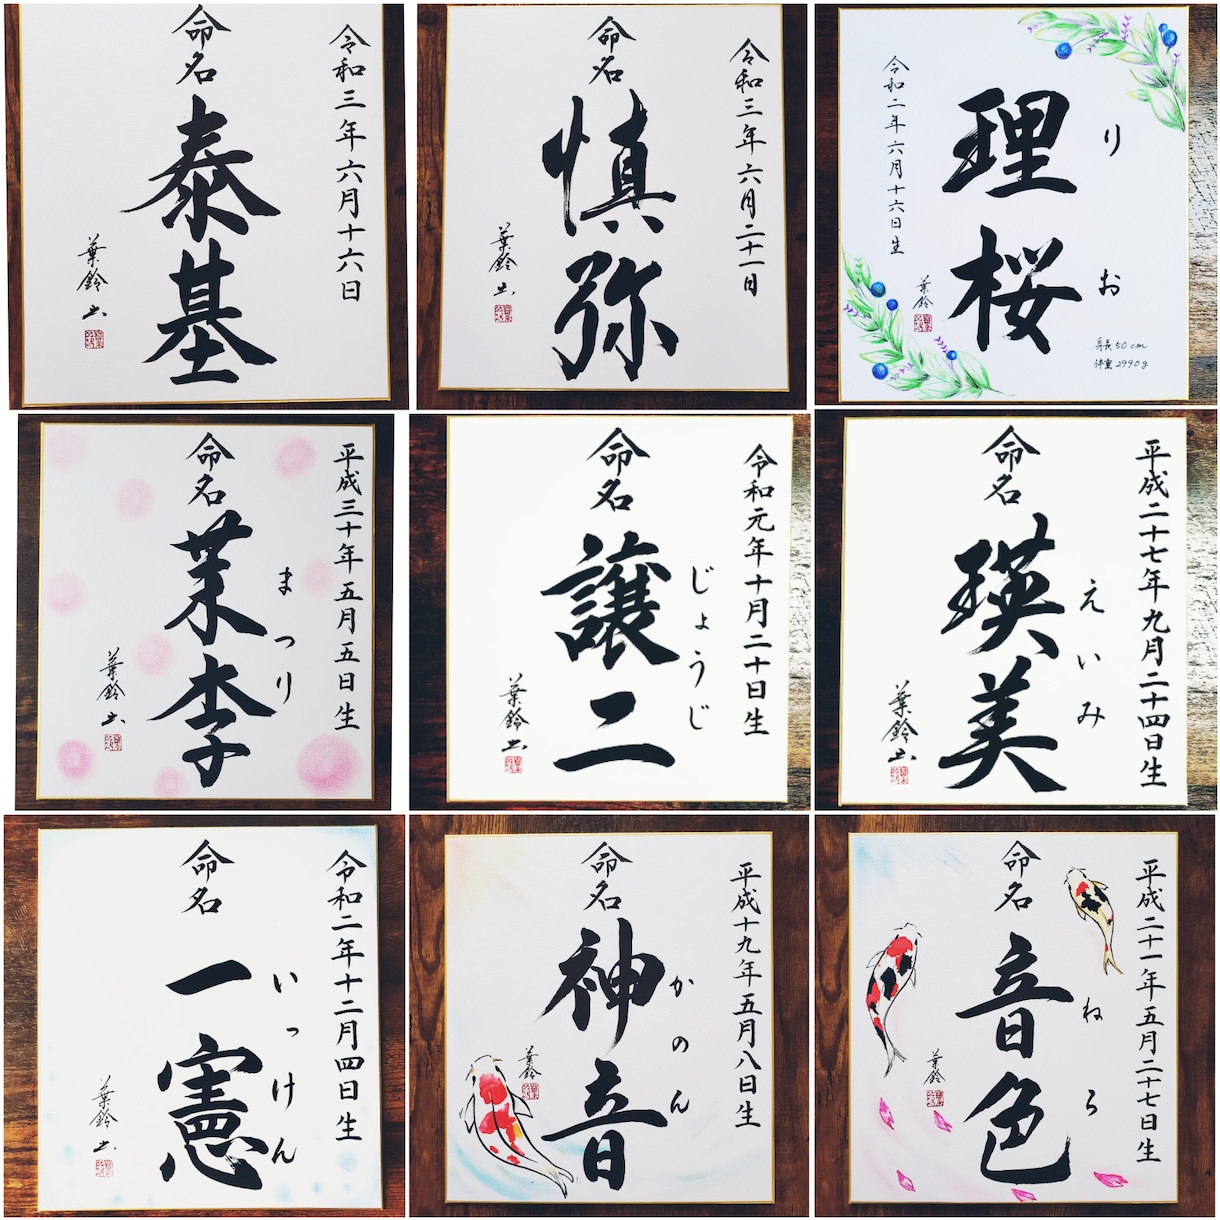 令和三年六月十六日
命名
泰基
葉鈴書
令和三年六月二十一日
命名
慎弥
葉鈴書
りお
理桜
令和二年六月十六日生
葉鈴
身長50cm
体重2990g
平成三十年五月五日生
命名
まつり
茉李
葉鈴書
令和元年十月二十日生
命名
じょうじ
譲二
葉鈴書
平成二十七年九月二十四日生
命名
えいみ
瑛美
葉鈴書
令和二年十二月四日生
命名
いっけん
一憲
葉鈴書
平成十九年五月八日生
命名
かのん
神音
葉鈴
平成二十一年五月二十七日生
命名
ねら
音色
葉鈴